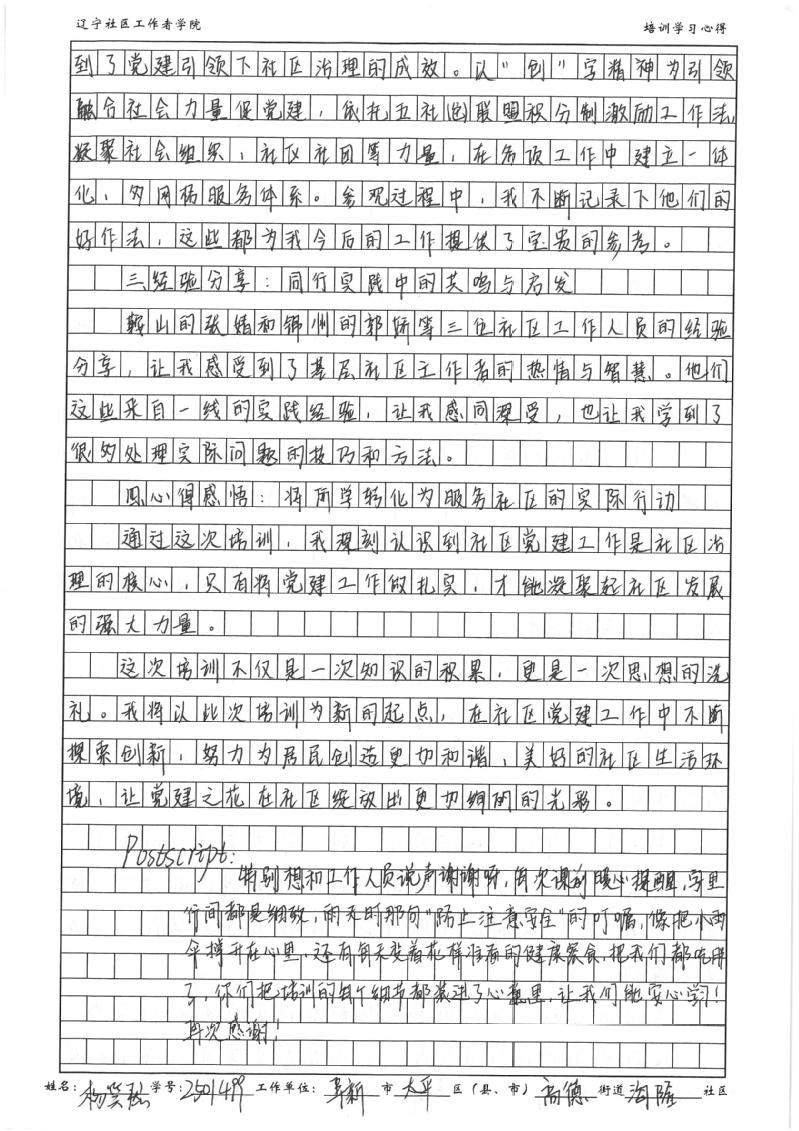 辽宁社区工作者学院 培训学习心得
到了党建引领下社区治理的成效。以"创"字精神为引领
融合社会力量促党建，依托五社联盟积分制激励工作法，
凝聚社会组织，社区社团等力量，在各项工作中建立一体
化、多网格服务体系。参观过程中，我不断记录下他们的
好作法，这些都为我今后的工作提供了宝贵的参考。
三经验分享：同行实践中的共鸣与启发
鞍山的张婧和锦州的郭娇等三位社区工作人员的经验
分享，让我感受到了基层社区工作者的热情与智慧。他们
这些来自一线的实践经验，让我感同深受，也让我学到了
很多处理实际问题的技巧和方法。
四心得感悟：将所学转化为服务社区的实际行动
通过这次培训，我深刻认识到社区党建工作是社区治
理的核心，只有将党建工作做扎实，才能凝聚起社区发展
的强大力量。
这次培训不仅是一次知识的积累，更是一次思想的洗
礼。我将以此次培训为新的起点，在社区党建工作中不断
探索创新，努力为居民创造更加和谐，美好的社区生活环
境，让党建之花在社区绽放出更加绚丽的光彩。
Postscript:
特别想和工作人员说声谢谢呀，每次课前暖心提醒，字里
行间都是细致，雨天时那句"防止注意安全"的叮嘱，像把小雨
伞撑开在心里，还有每天变着花样准备的健康餐食，把我们都吃胖
了，你们把培训的每个细节都装进了心意里，让我们能安心学习！
再次感谢！
姓名：杨 学号：2501499 工作单位：阜新 市 太平 区（县、市）高德 街道 街道社区